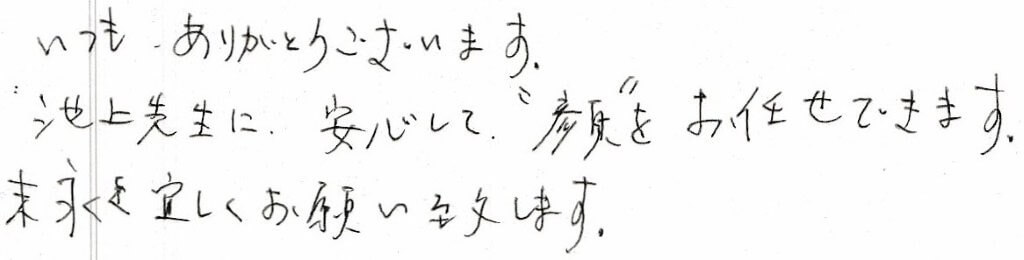 いつも、ありがとうございます。
池上先生に、安心して、〝顔〟をお任せできます。
末永く宜しくお願い致します。